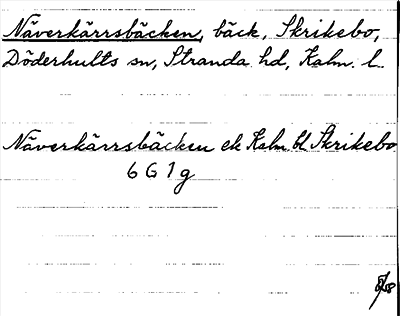 Näverkärrsbäcken, bäck, Skrikebo,
Döderhults sn, Stranda hd, Kalm. l.
Näverkärrsbäcken ek Kalm. bl Skrikebo
6 G 1 g